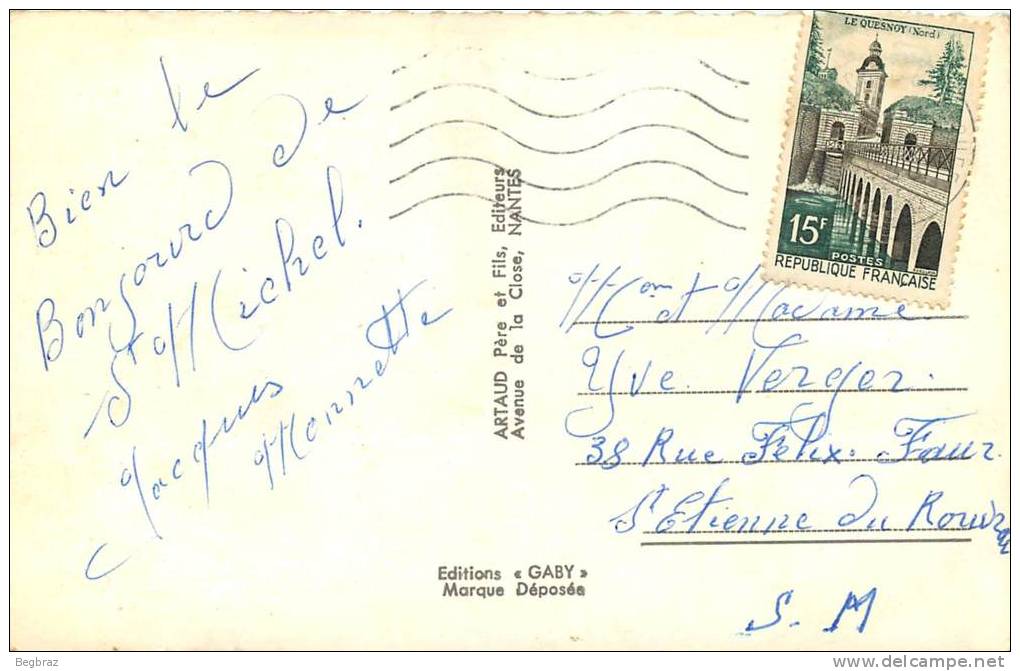 Bien le
Bonjourd de
St Michel.
Jacques
Monnette
ARTAUD Père et Fils, Editeurs
Avenue de la Close, NANTES
Editions « GABY »
Marque Déposée
LE QUESNOY (Nord)
15F
POSTES
REPUBLIQUE FRANÇAISE
Mom et Madame
Yve Verger.
38 Rue Félix. Faur
St Etienne du Rouvray
S. M
Begbraz
http://www.delcampe.net